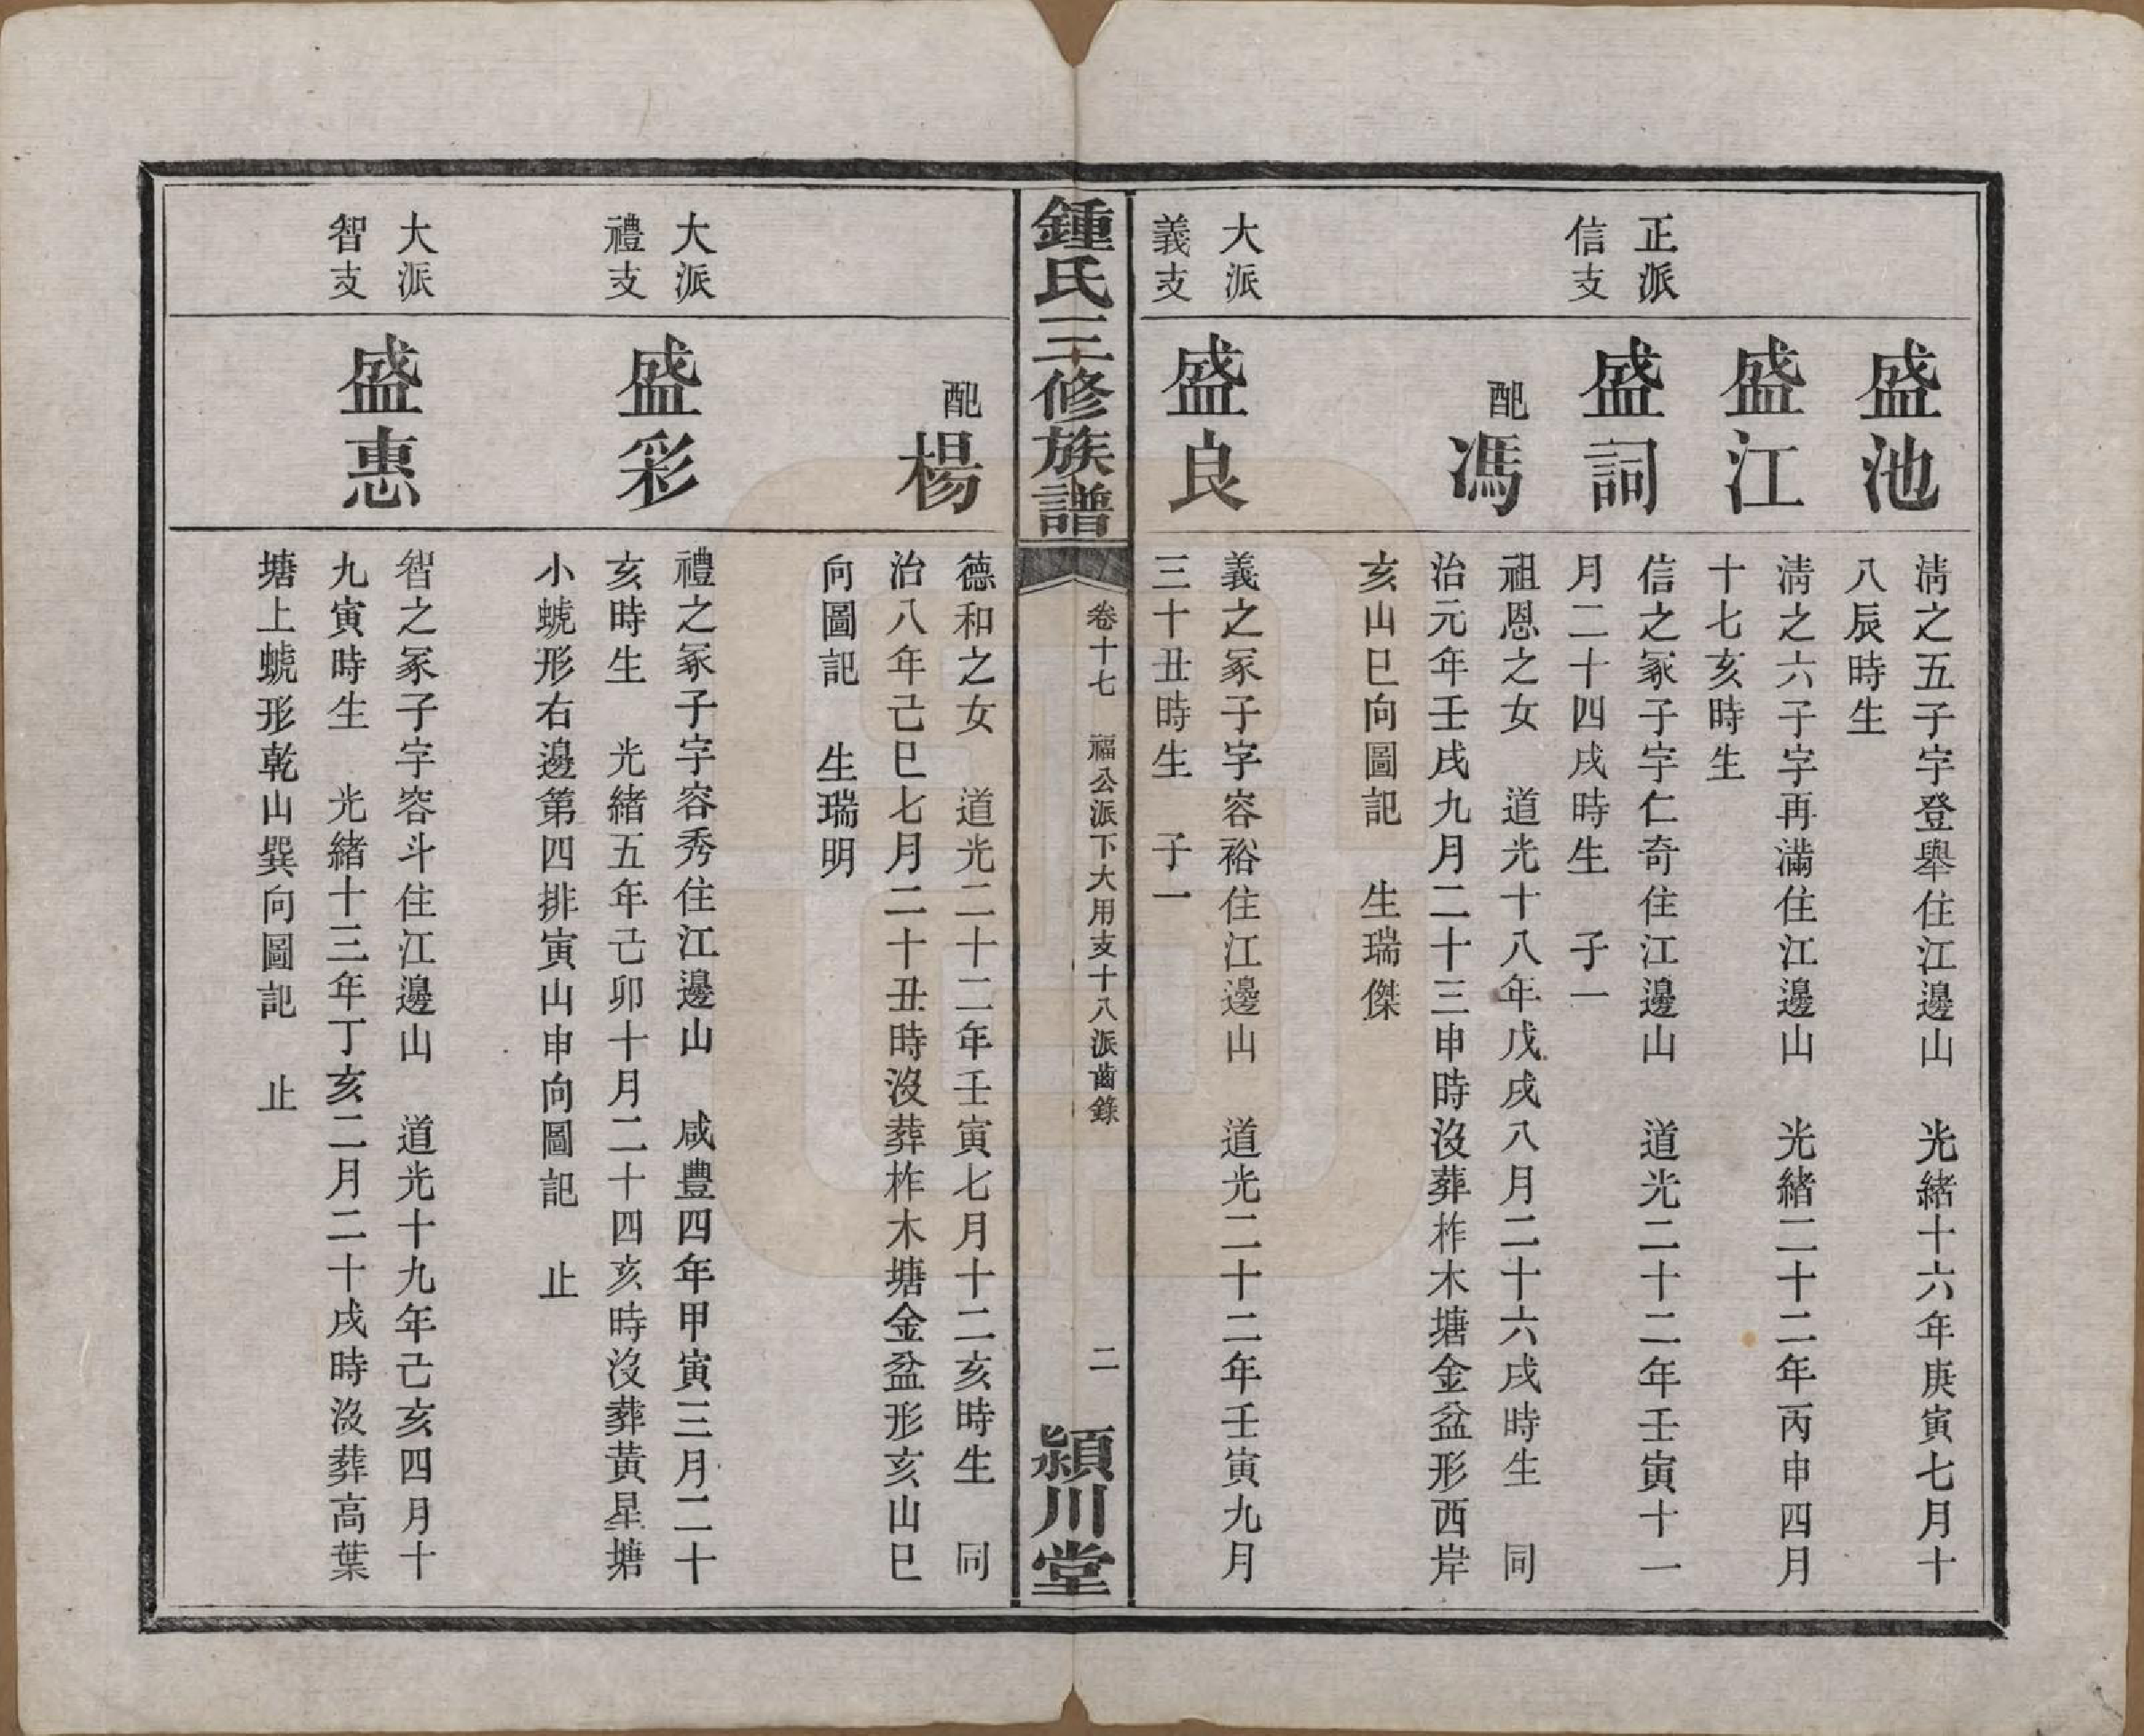 盛池
清之五子字登舉住江邊山　光緒十六年庚寅七月十
八辰時生
盛江
清之六子字再滿住江邊山　光緒二十二年丙申四月
十七亥時生
正派
信支
盛詞
信之冢子字仁奇住江邊山　道光二十二年壬寅十一
月二十四戌時生　子一
配馮
祖恩之女　道光十八年戊戌八月二十六戌時生　同
治元年壬戌九月二十三申時沒葬柞木塘金盆形西岸
亥山巳向圖記　生瑞傑
大派
義支
盛良
義之冢子字容裕住江邊山　道光二十二年壬寅九月
三十丑時生　子一
鍾氏三修族譜
卷十七　福公派下大用支十八派齒錄
二
潁川堂
配楊
德和之女　道光二十二年壬寅七月十二亥時生　同
治八年己巳七月二十丑時沒葬柞木塘金盆形亥山巳
向圖記　生瑞明
大派
禮支
盛彩
禮之冢子字容秀住江邊山　咸豐四年甲寅三月二十
亥時生　光緒五年己卯十月二十四亥時沒葬黃星塘
小螁形右邊第四排寅山申向圖記　止
大派
智支
盛惠
智之冢子字容斗住江邊山　道光十九年己亥四月十
九寅時生　光緒十三年丁亥二月二十戌時沒葬高葉
塘上螁形乾山巽向圖記　止